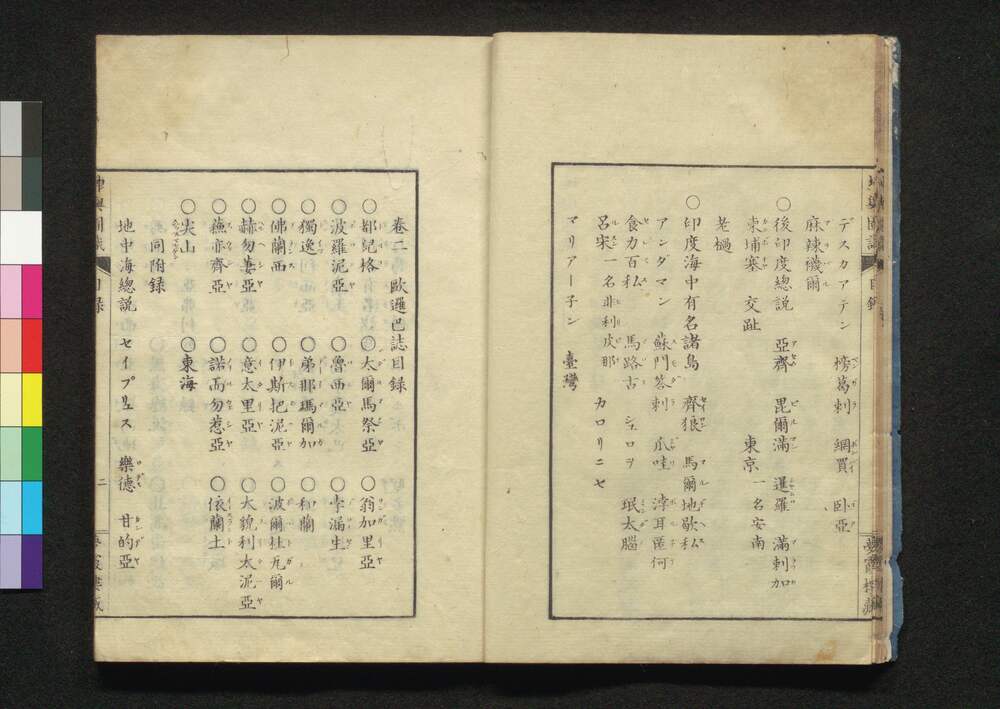 デスカアテン 榜葛剌 網買 卧亞
麻辣襪爾
〇後印度總説 亞齊 毘爾滿 暹羅 滿剌加
柬埔寨 交趾 東京 一名安南
老撾
〇印度海中有名諸島 齊狼 馬爾地歇私
アンダマン 蘇門答剌 爪哇 渟耳匿何
食力百私 馬路古 シュロヲ 珉太腦
呂宋 一名非利皮那 カロリニセ
マリアー子ン 臺灣
卷二歐邏巴誌目録
〇都兒格 〇太爾馬祭亞 〇翁加里亞
〇波羅泥亞 〇魯西亞 〇孛漏生
〇獨逸 〇弟那瑪爾加 〇和蘭
〇佛蘭西 〇伊斯把泥亞 〇波爾杜瓦爾
〇赫勿萋亞 〇意太里亞 〇大貌利太泥亞
〇蘓亦齊亞 〇諾而勿惹亞 〇依蘭土
〇尖山 〇東海
同附録
地中海總説 セイプリュス 樂德 甘的亞
目録
二